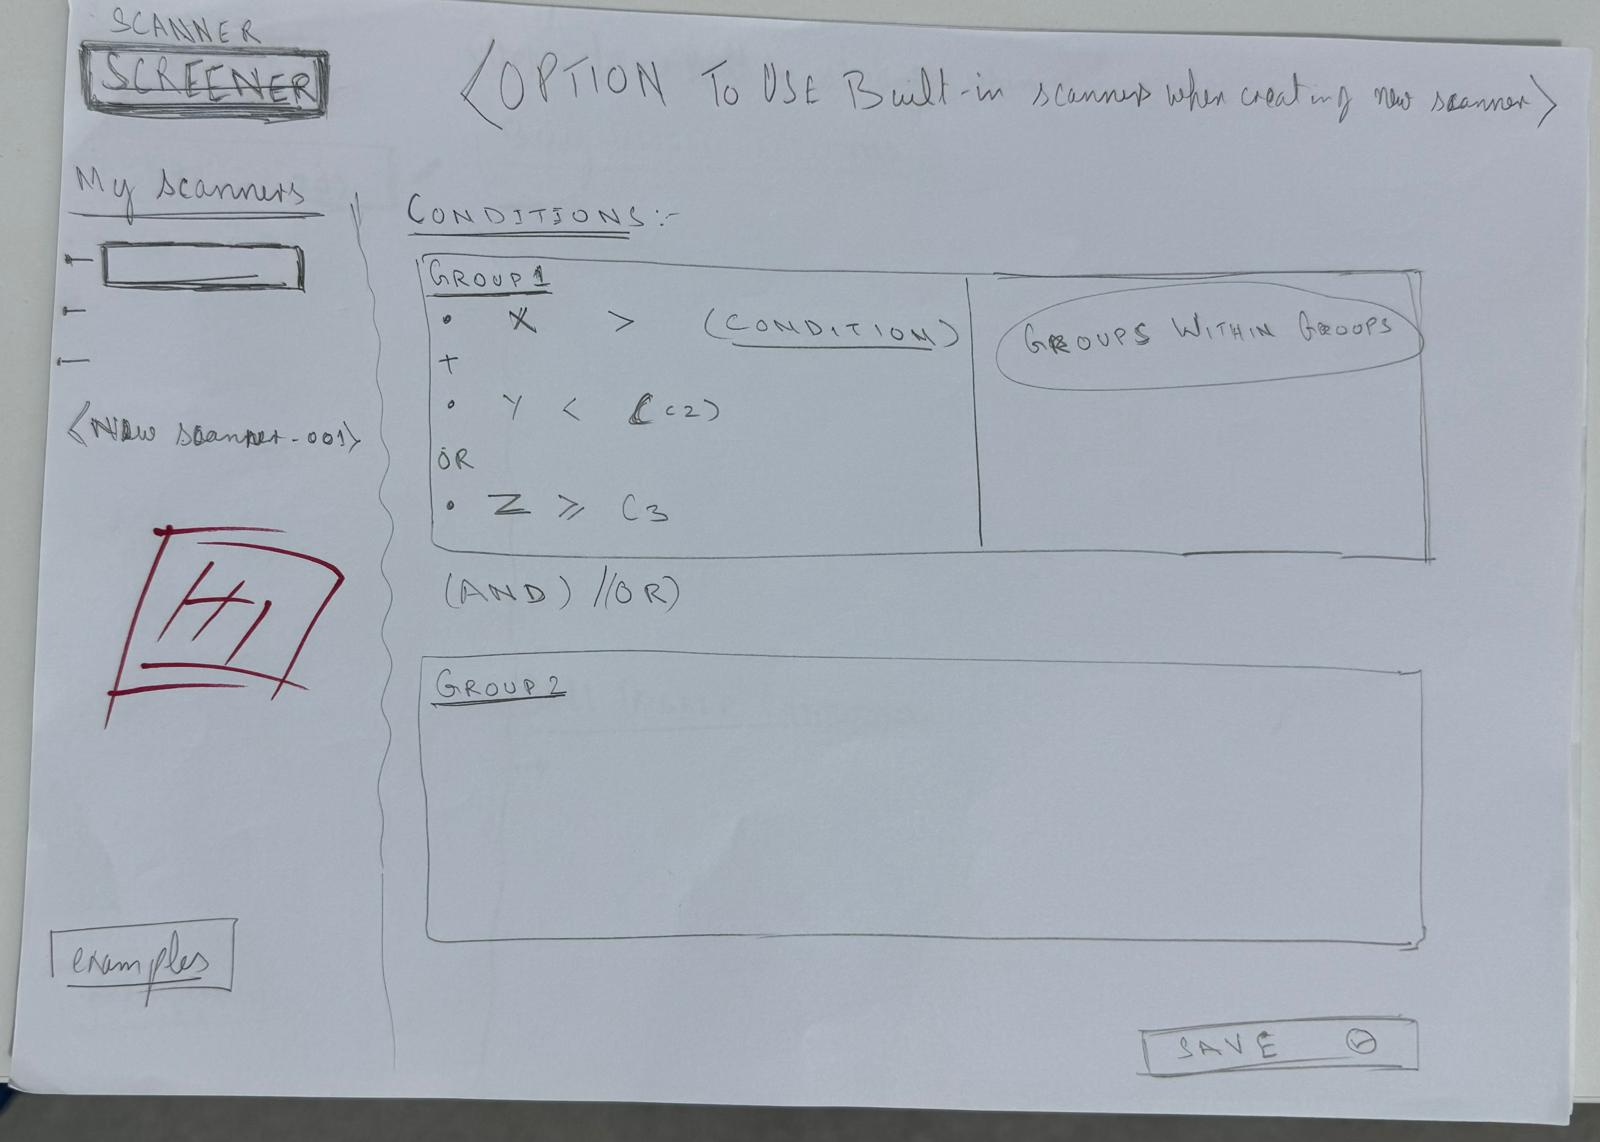 SCANNER
SCREENER
<OPTION TO USE Built-in scanners when creating new scanner>
My scanners
<New scanner-001>
Hi
examples
CONDITIONS:-
GROUP 1
• X > (CONDITION)
+
• Y < (C2)
OR
• Z ≥ C3
GROUPS WITHIN GROUPS
(AND) //OR)
GROUP 2
SAVE